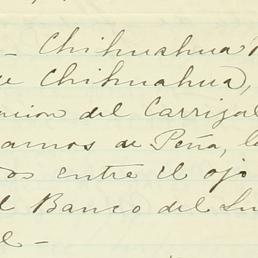 - Chihuahua
de Chihuahua,
cion del Carrizal
amos de Peña, l
os entre el ojo
l Banco del Su
el -